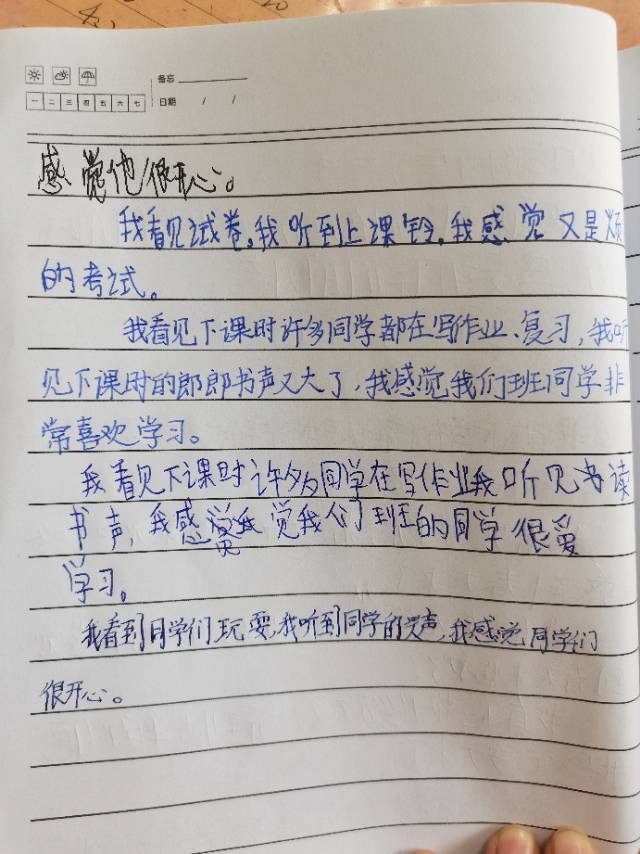 备忘
一 二 三 四 五 六 七 日期 / /
感觉他很开心。
我看见试卷,我听到上课铃,我感觉又是烦
的考试。
我看见下课时许多同学都在写作业、复习,我听
见下课时的郎郎书声又大了,我感觉我们班同学非
常喜欢学习。
我看见下课时许多同学在写作业我听见书读
书声,我感觉我觉我们班的同学很爱
学习。
我看到同学们玩耍,我听到同学的笑声,我感觉同学们
很开心。